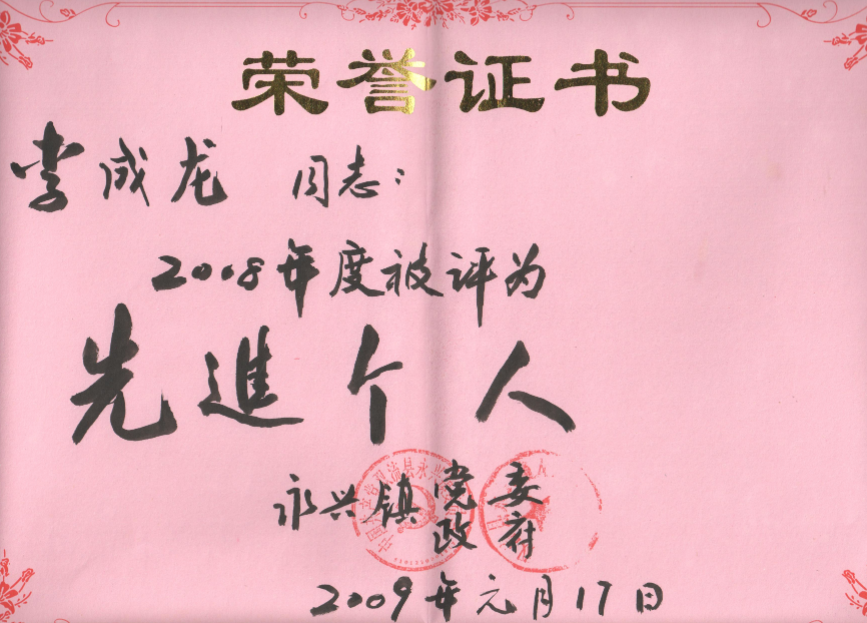 荣誉证书
李成龙 同志:
2008年度被评为
先進个人
永兴镇党委
政府
2009年元月17日